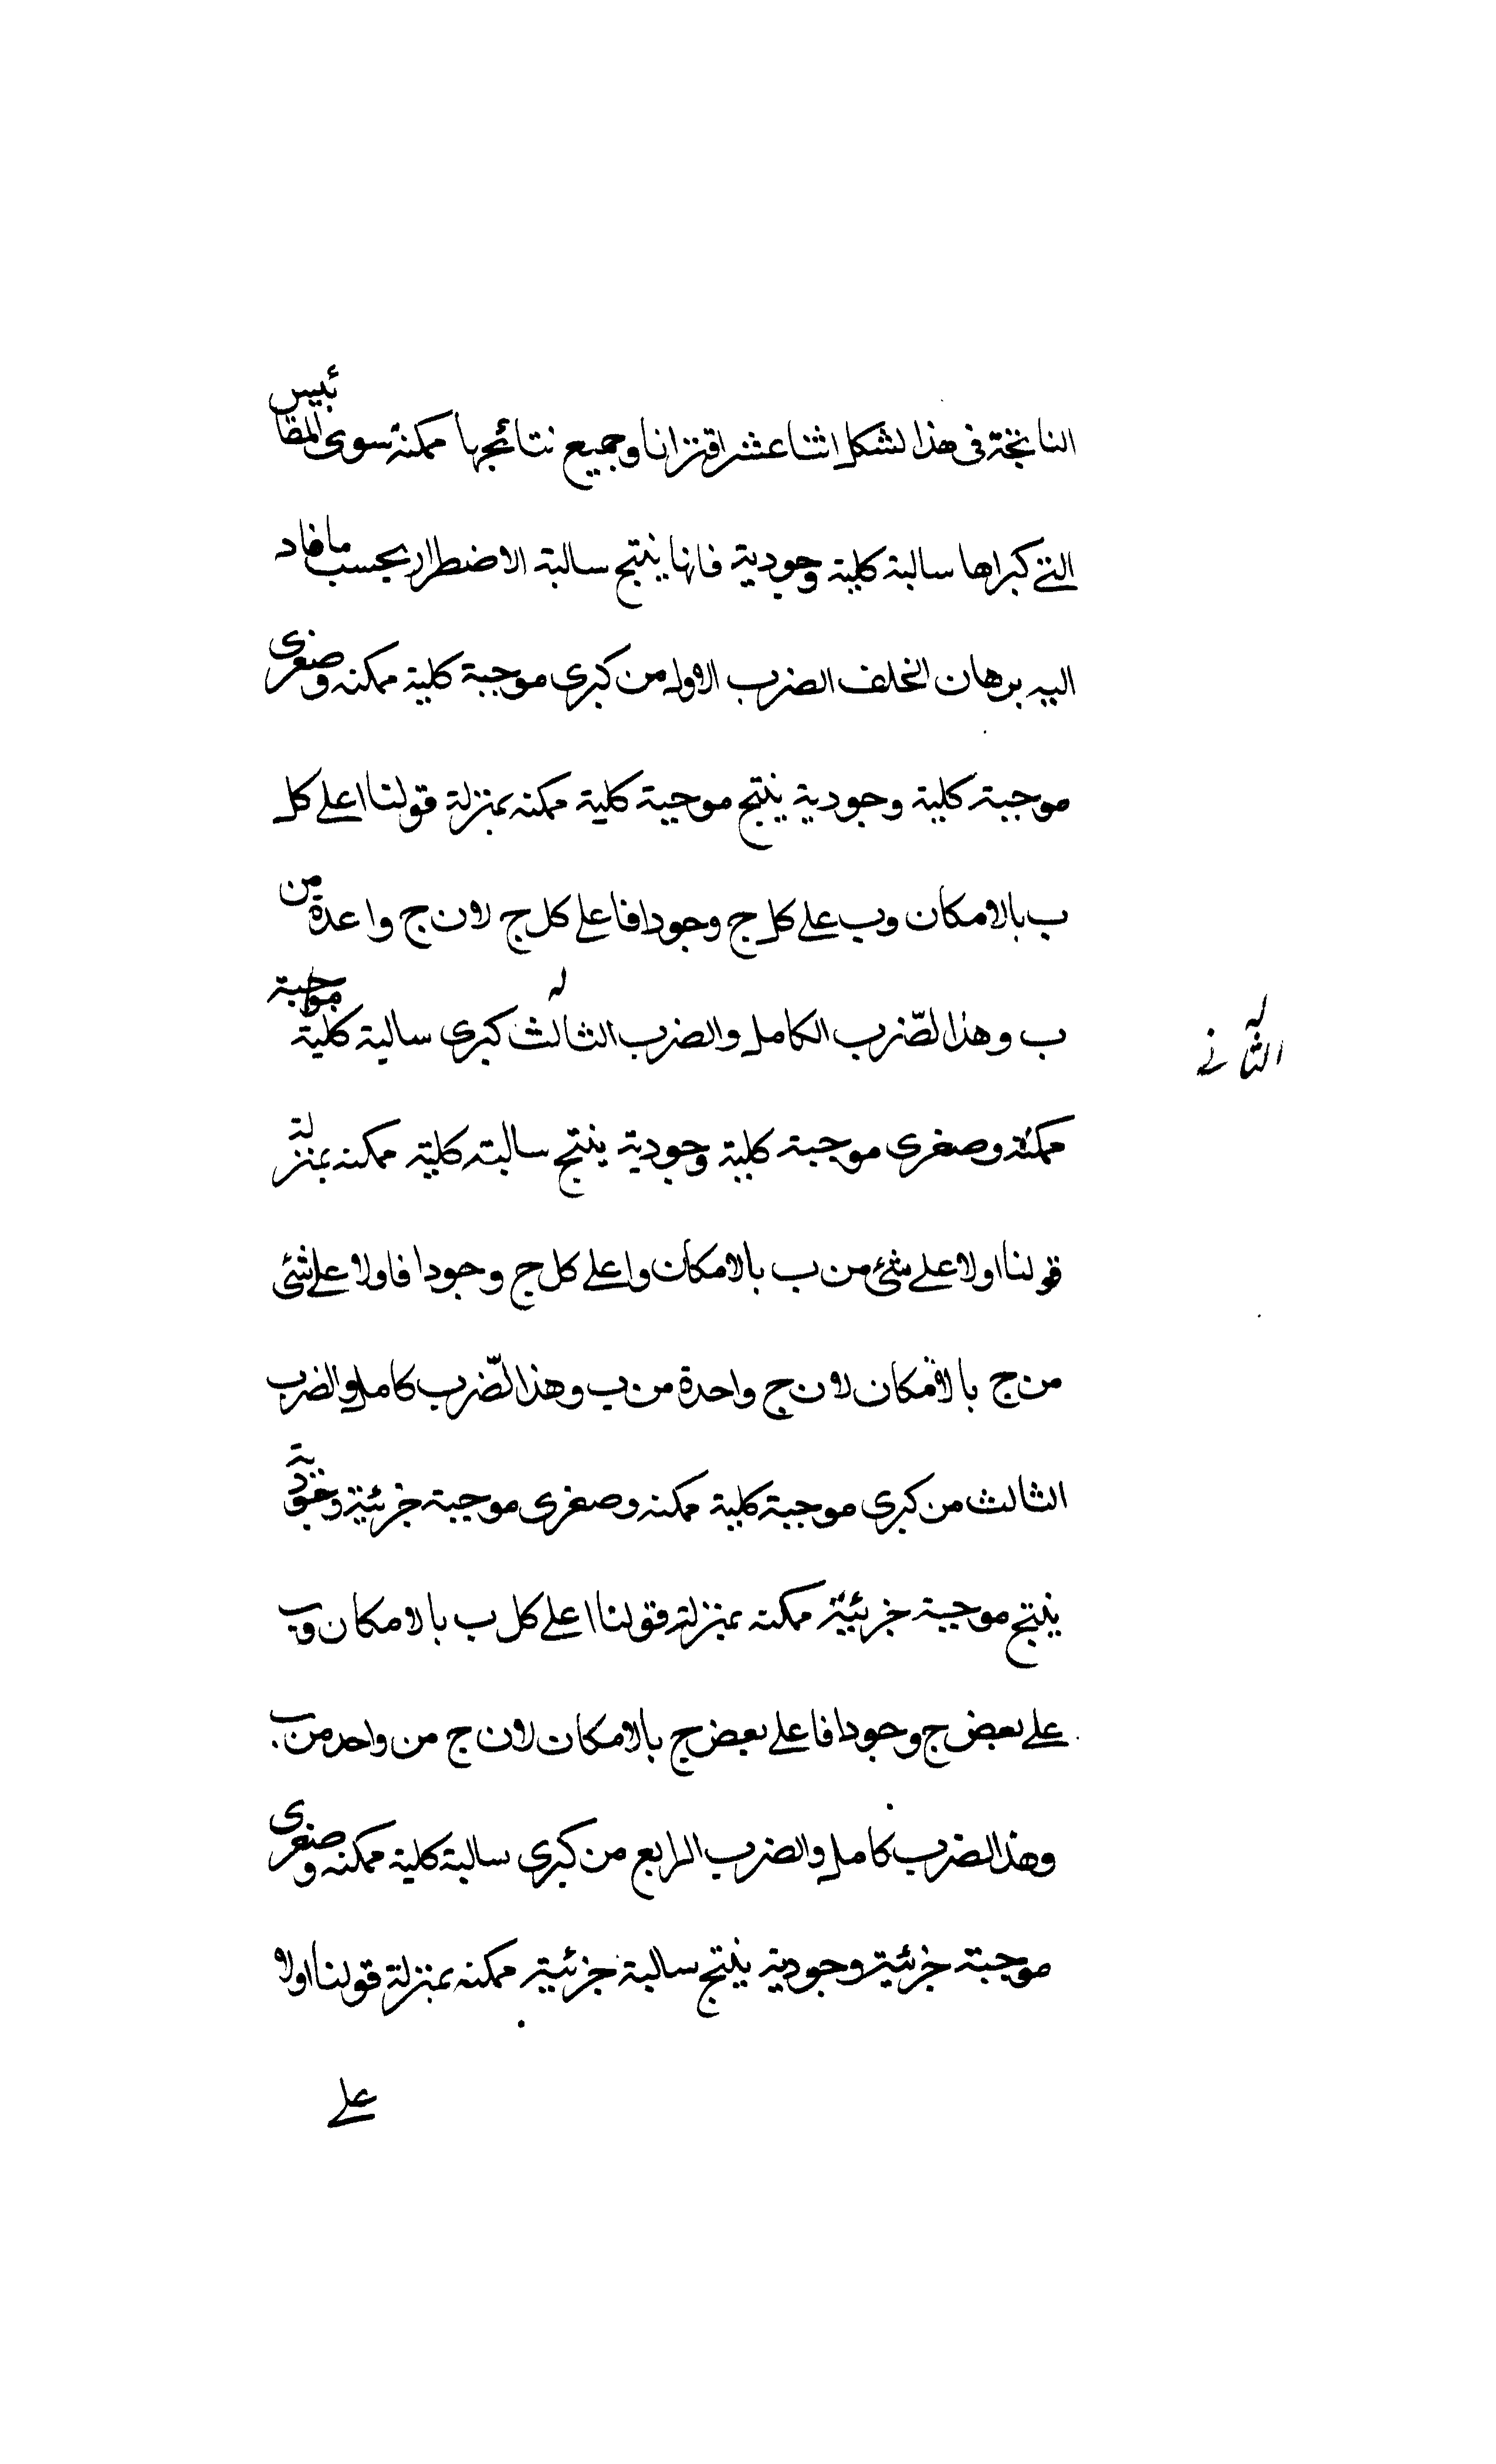 الناتجة فى هذا لشكل اثنا عشر اقترانا وجميع نتائجها ممكنة سوى المقائيس
التي كبراها سالبة كلية وجودية فانها ينتج سالبة الاضطرار بحسب ما فاد
اليه برهان الخلف الضرب الاول من كبرى موجبة كلية ممكنه وصغرى
موجبة كلية وجودية ينتج موجبة كلية ممكنه بمنزلة قولنا ا على كل
ب بالامكان وب على كل ج وجودا فا على كل ج لان ج واعدة من
ب وهذا لضّرب الكامل والضرب الثالث كبرى سالبة كلية موجبة
الثانے
ممكنة وصغرى موجبة كلية وجودية ينتج سالبة كلية ممكنه بمنزلة
قولنا ا ولا على شئ من ب بالامكان وا على كل ج وجودا فا ولا على شئ
من ج بالامكان لان ج واحدة من ب وهذا لضّرب كامل والضرب
الثالث من كبرى موجبة كلية ممكنه وصغرى موجبة جزئية وجودية
ينتج موجبة جزئية ممكنه بمنزلة قولنا ا على كل ب بالامكان وب
على بعض ج وجودا فا على بعض ج بالامكان لان ج من واحد من ب
وهذا الضرب كامل والضرب الرابع من كبرى سالبة كلية ممكنه وصغرى
موجبة جزئية وجودية ينتج سالبة جزئية ممكنه بمنزلة قولنا ا ولا
على